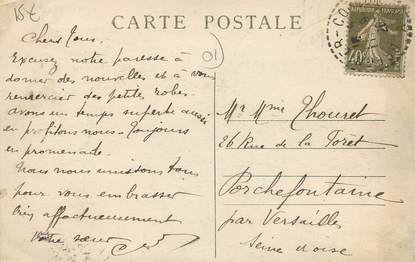 15€
CARTE POSTALE
01
Chers Tous.
Excusez notre paresse à
donner des nouvelles et à vous
remercier des petites robes.
Avons un temps superbe aussi
en profitons nous - Toujours
en promenade.
Nous nous unissons tous
pour vous embrasser
bien affectueusement
Votre sœur
40c
Mr Mme Thouret
26 Rue de la Forêt
Porchefontaine
par Versailles
Seine et oise